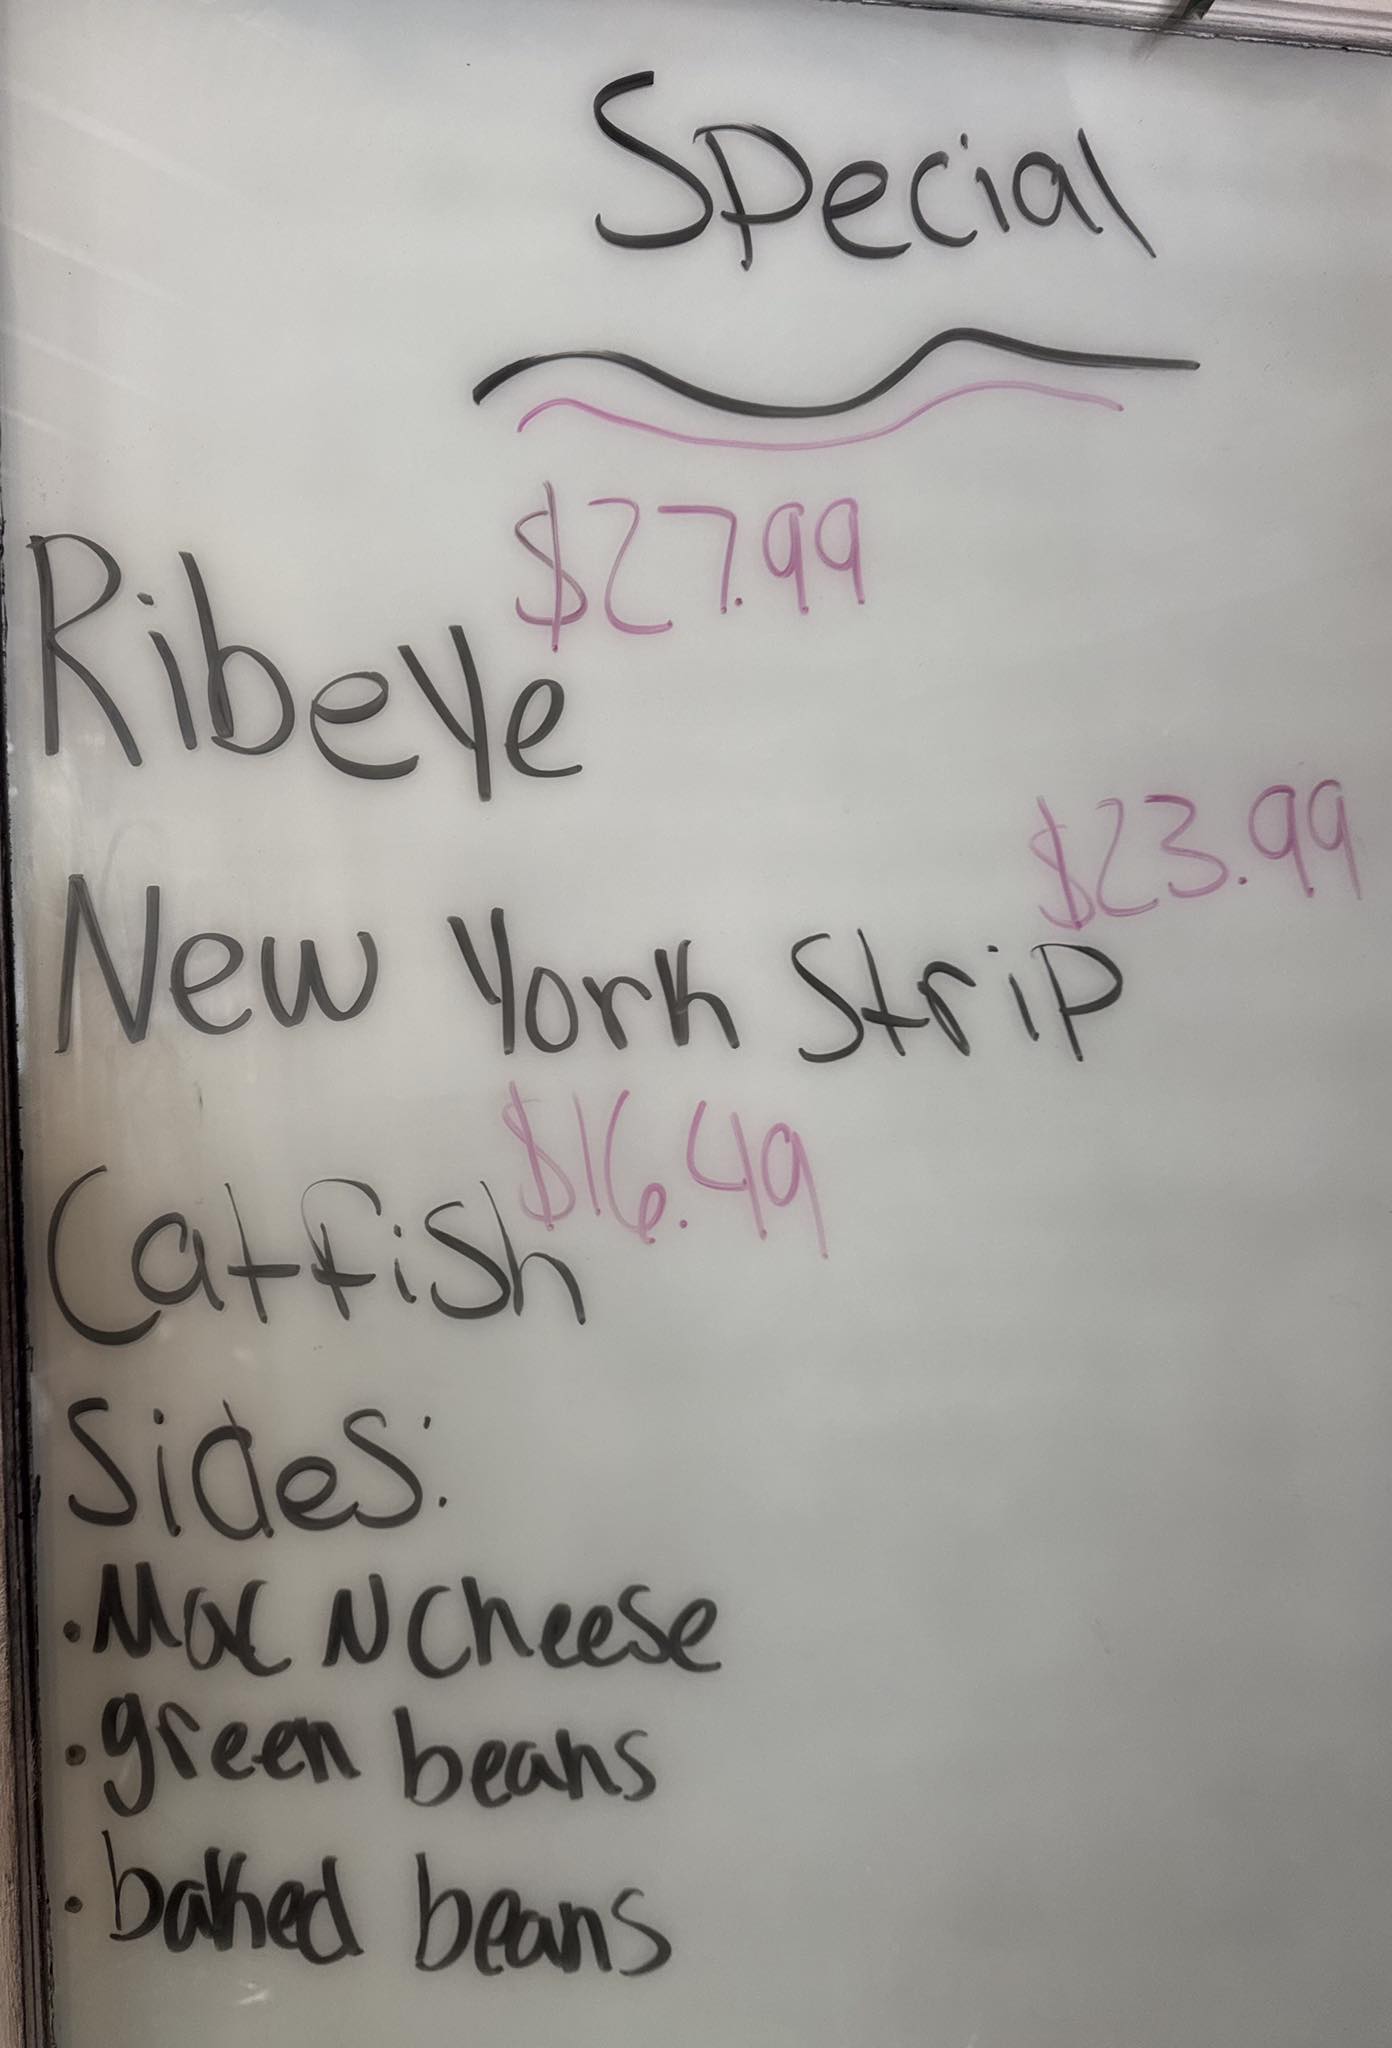 Special
$27.99
Ribeye
$23.99
New York Strip
$16.49
Catfish
Sides:
· Mac N Cheese
· green beans
· baked beans